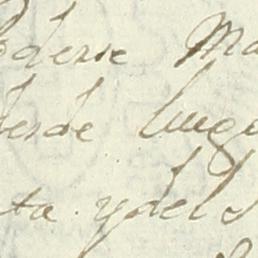 poderse Ma
desde luego
ta ydel S